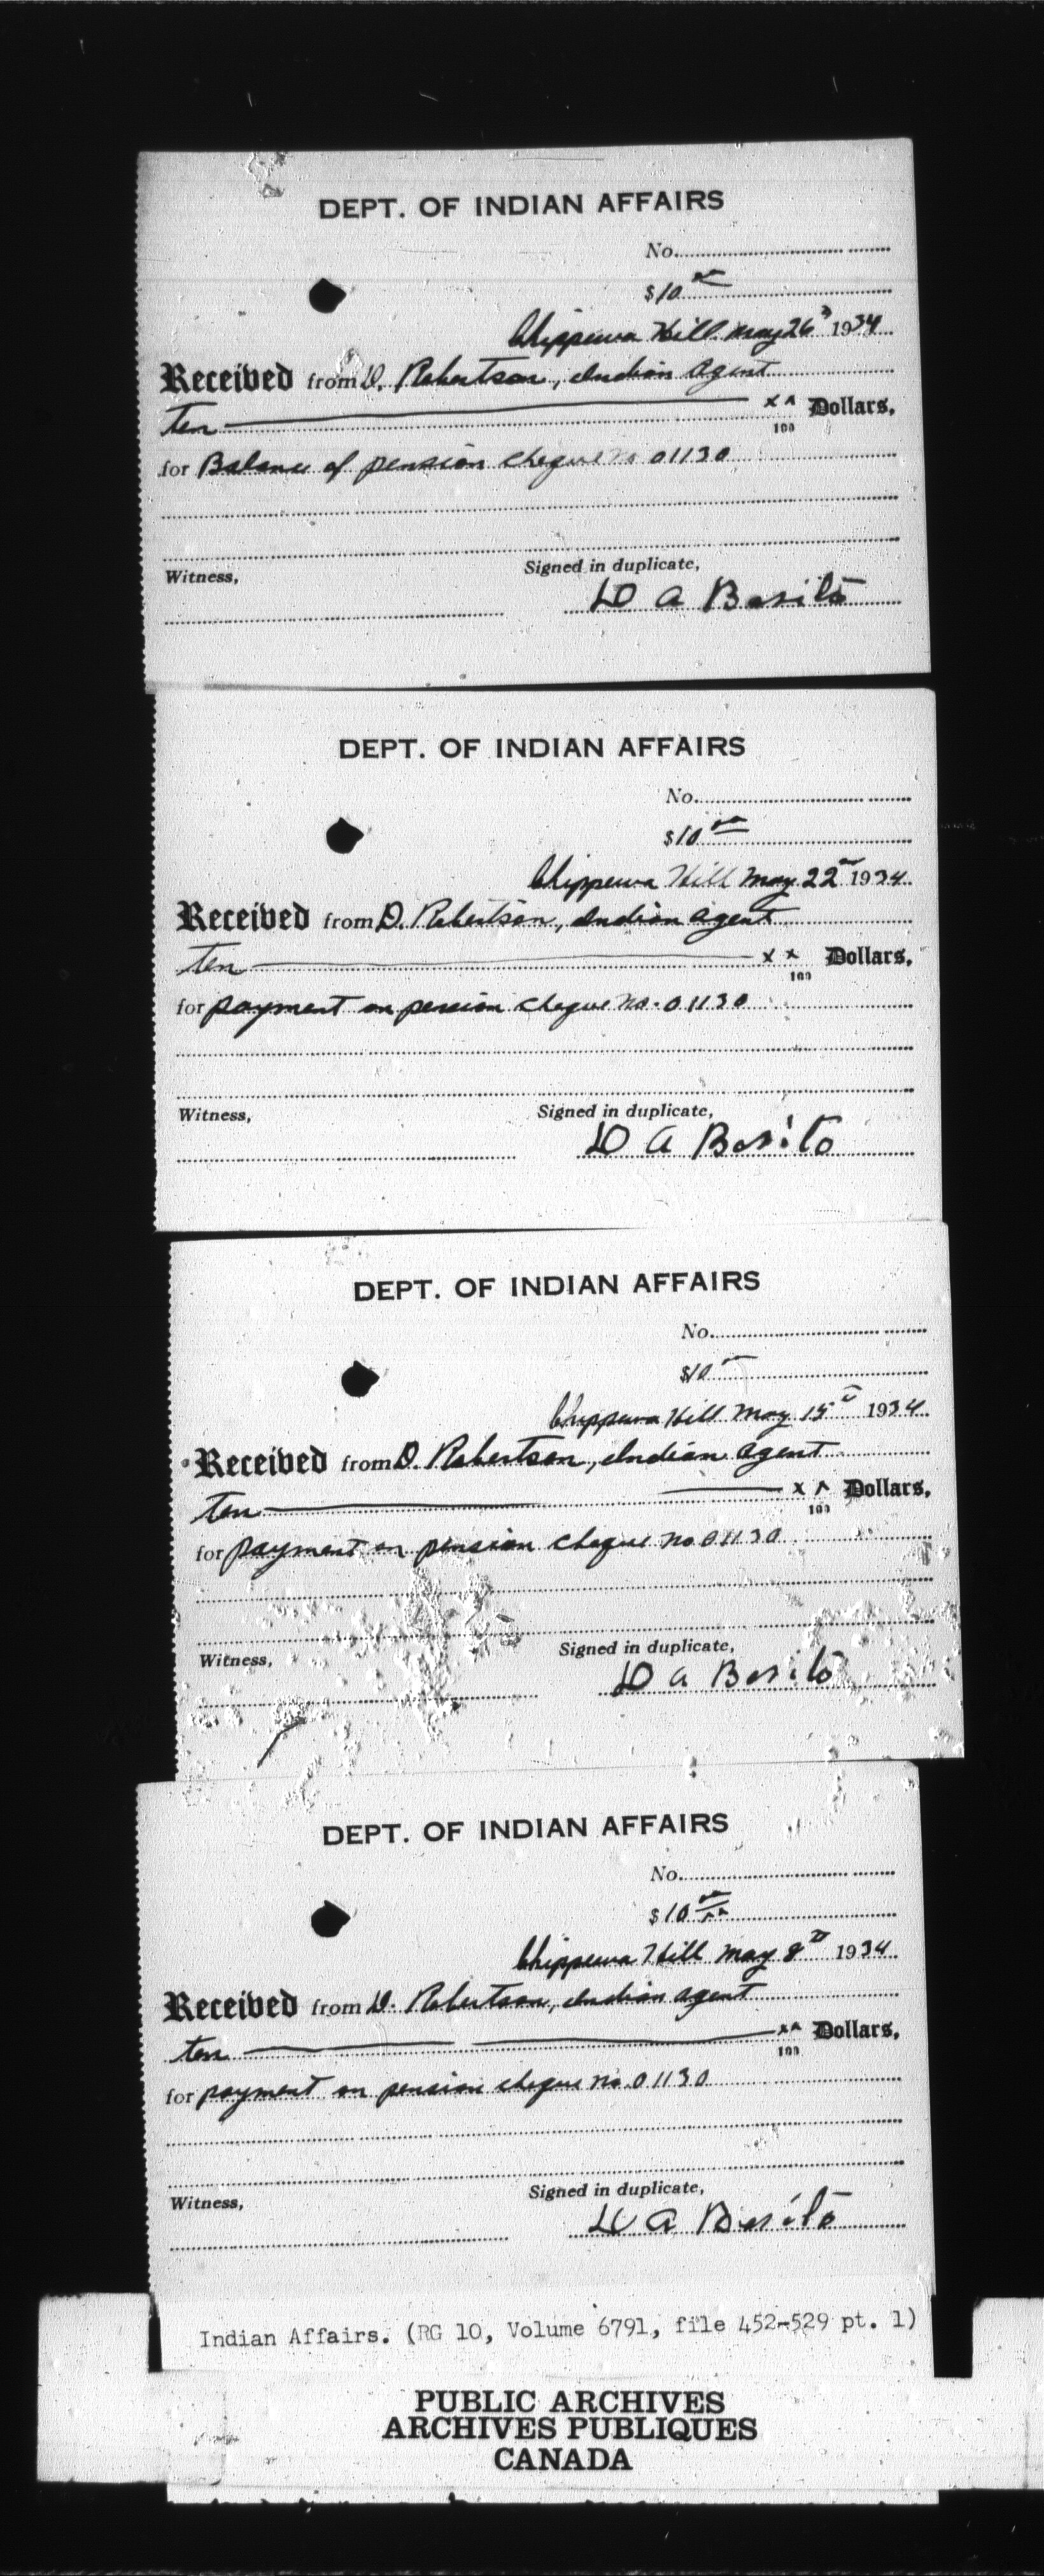 DEPT. OF INDIAN AFFAIRS
No.
$10 00
Chippewa Hill. May 26th 1934
Received from D. Robertson, Indian Agent
Ten xx/100 Dollars,
for Balance of pension cheque no 01130
Signed in duplicate,
Witness,
D A Besito
DEPT. OF INDIAN AFFAIRS
No.
$10 00
Chippewa Hill May 22 1934
Received from D. Robertson, Indian Agent
Ten xx/100 Dollars,
for payment on pension cheque no. 01130
Signed in duplicate,
Witness,
D A Besito
DEPT. OF INDIAN AFFAIRS
No.
$10
Chippewa Hill May 15 1934
Received from D. Robertson, Indian Agent
Ten xx/100 Dollars,
for payment on pension cheque no 01130
Signed in duplicate,
Witness,
D A Besito
DEPT. OF INDIAN AFFAIRS
No.
$10 00/xx
Chippewa Hill May 8 1934
Received from D. Robertson, Indian Agent
Ten xx/100 Dollars,
for payment on pension cheque no. 01130
Signed in duplicate,
Witness,
D A Besito
Indian Affairs. (RG 10, Volume 6791, file 452-529 pt. 1)
PUBLIC ARCHIVES
ARCHIVES PUBLIQUES
CANADA